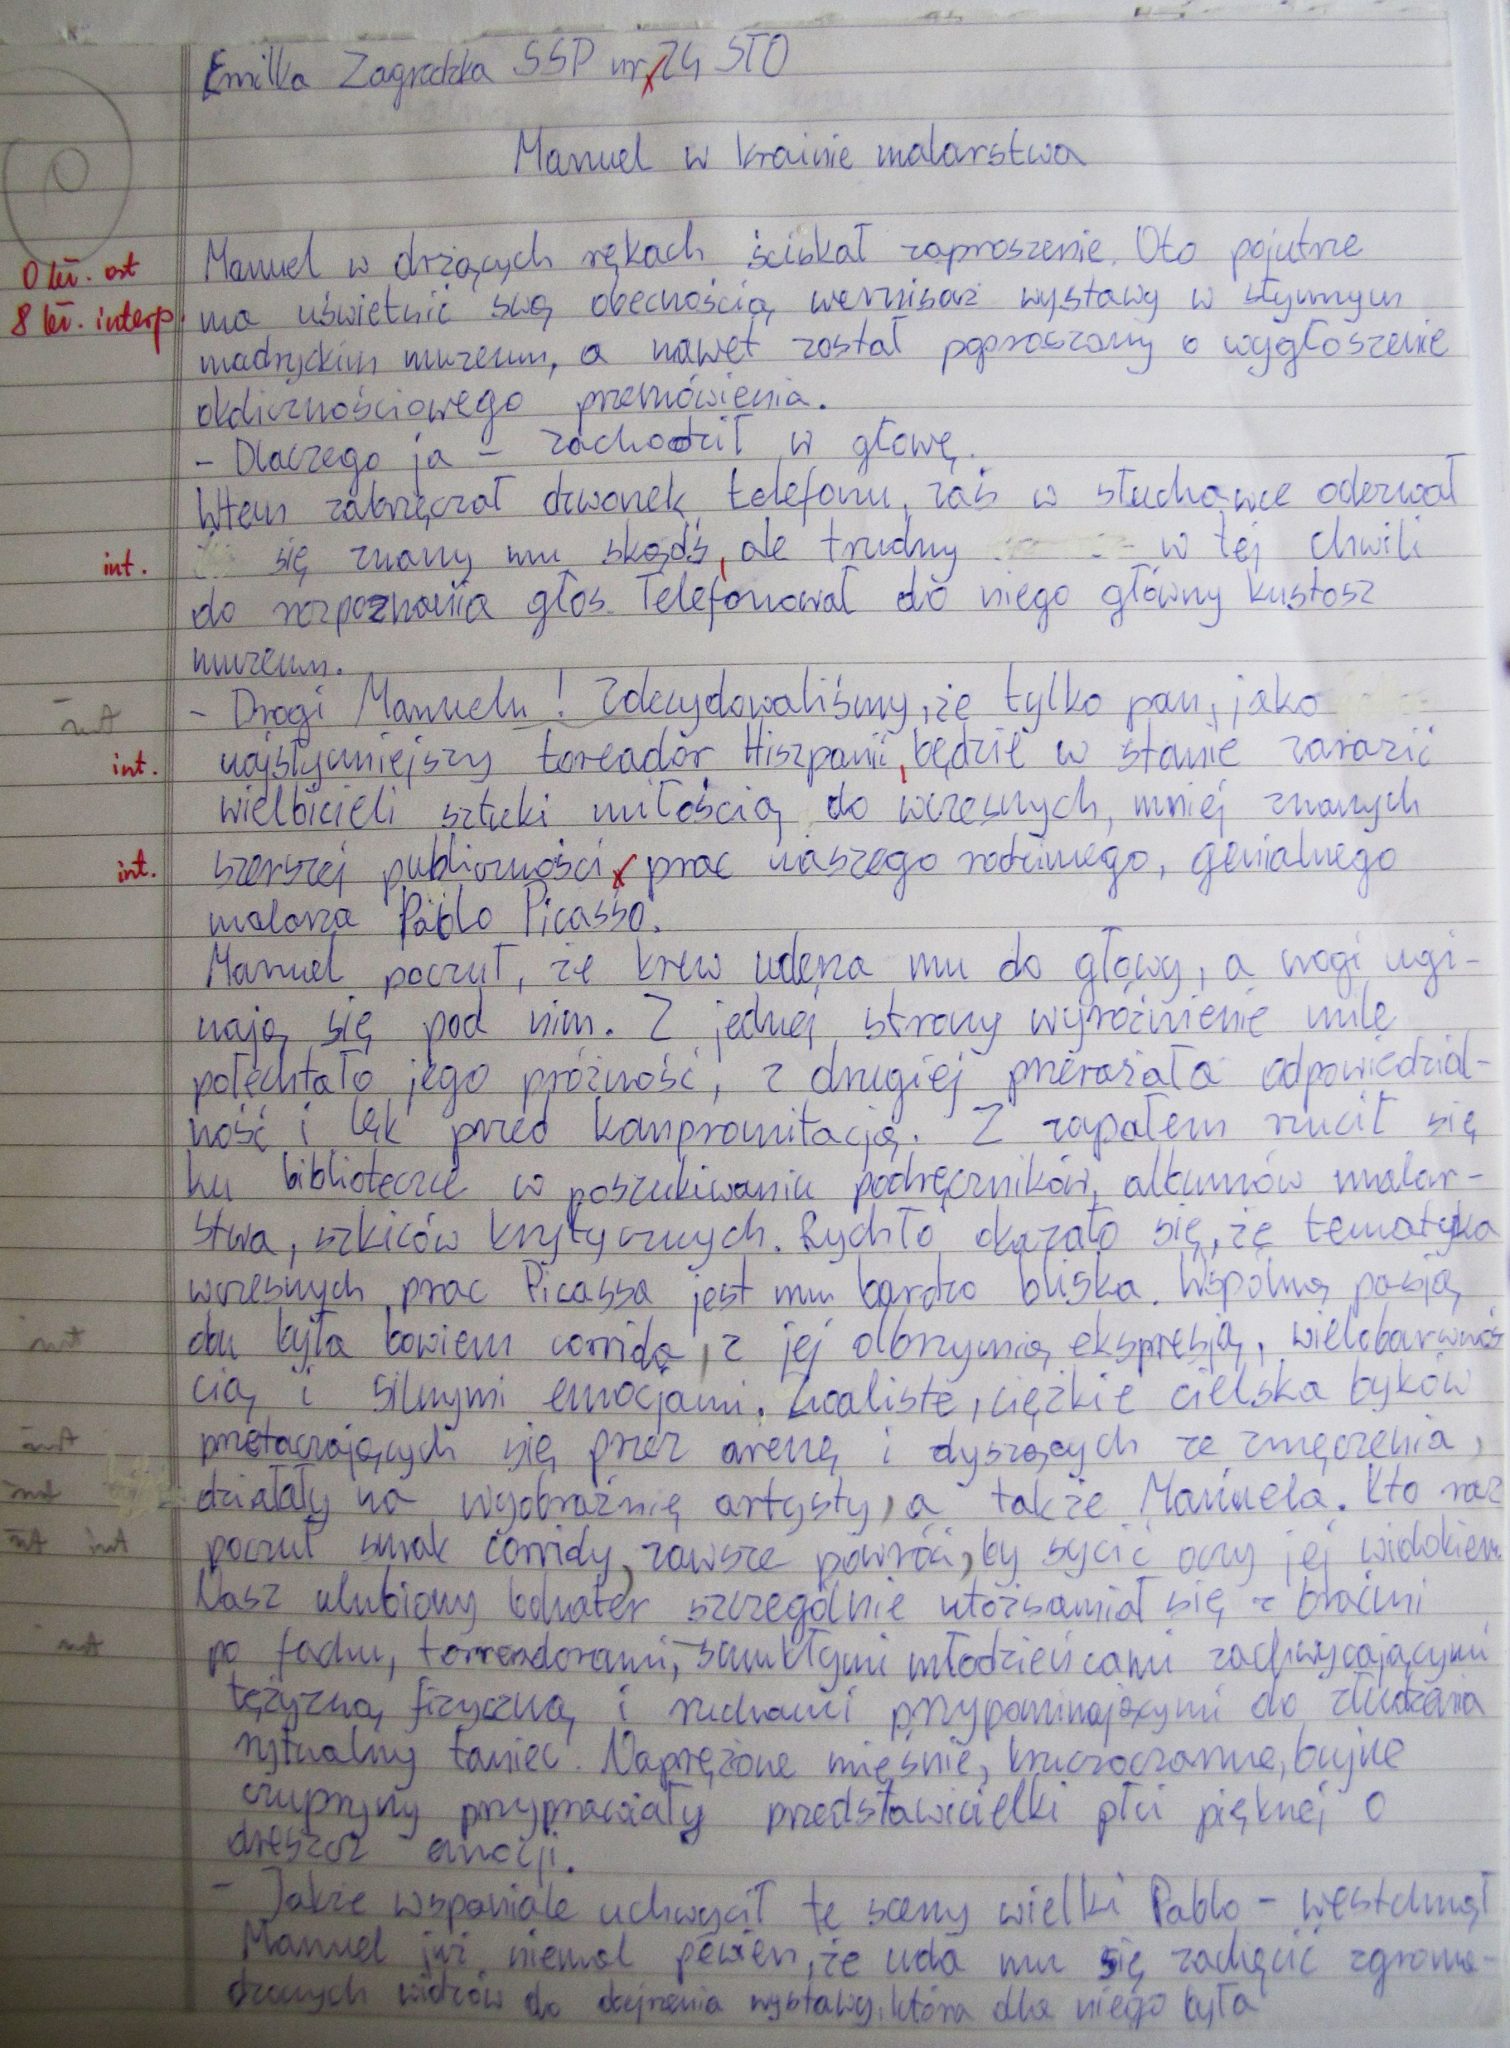 Emilka Zagrodzka SSP nr 24 STO
Manuel w krainie malarstwa
0 kr. ort
8 kr. interp.
Manuel w drżących rękach ściskał zaproszenie. Oto pojutrze
ma uświetnić swą obecnością wernisaż wystawy w słynnym
madryckim muzeum, a nawet został poproszony o wygłoszenie
okolicznościowego przemówienia.
- Dlaczego ja - zachodził w głowę.
Wtem zabrzęczał dzwonek telefonu, zaś w słuchawce oderwał
int. się znany mu skądś, ale trudny w tej chwili
do rozpoznania głos. Telefonował do niego główny kustosz
muzeum.
int - Drogi Manuelu! Zdecydowaliśmy, że tylko pan, jako
int. najsłynniejszy toreador Hiszpanii, będzie w stanie zarazić
wielbicieli sztuki miłością do wczesnych, mniej znanych
int. szerszej publiczności prac naszego rodzimego, genialnego
malarza Pablo Picasso.
Manuel poczuł, że krew uderza mu do głowy, a nogi ugi-
nają się pod nim. Z jednej strony wyróżnienie mile
połechtało jego próżność, z drugiej przerażała odpowiedzial-
ność i lęk przed kompromitacją. Z zapałem rzucił się
ku biblioteczce w poszukiwaniu podręczników, albumów malar-
stwa, szkiców krytycznych. Rychło okazało się, że tematyka
wczesnych prac Picassa jest mu bardzo bliska. Wspólną pasją
int obu była bowiem corrida, z jej olbrzymią ekspresją, wielobarwnoś
cią i silnymi emocjami. ciężkie cielska byków
int przetaczających się przez arenę i dyszących ze zmęczenia,
int działały na wyobraźnię artysty, a także Manuela. Kto raz
int int poczuł smak corridy, zawsze powróci, by sycić oczy jej widokiem.
Nasz ulubiony bohater szczególnie utożsamiał się z braćmi
int po fachu, torreadorami, smukłymi młodzieńcami zachwycającymi
tężyzną fizyczną i ruchami przypominającymi do złudzenia
rytualny taniec. Naprężone mięśnie, kruczoczarne, bujne
czupryny przyprawiały przedstawicielki płci pięknej o
dreszcz emocji.
- Jakże wspaniale uchwycił te sceny wielki Pablo - westchnął
Manuel już niemal pewien, że uda mu się zachęcić zgroma-
dzonych widzów do obejrzenia wystawy, która dla niego była